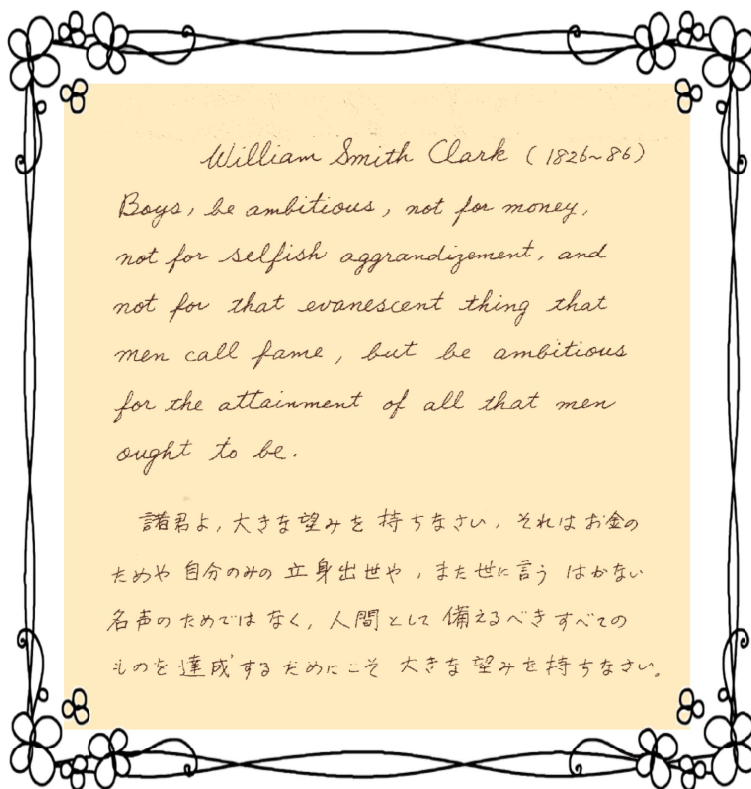 William Smith Clark (1826~86)
Boys, be ambitious, not for money,
not for selfish aggrandizement, and
not for that evanescent thing that
men call fame, but be ambitious
for the attainment of all that men
ought to be.
諸君よ,大きな望みを持ちなさい,それはお金の
ためや自分のみの立身出世や,また世に言うはかない
名声のためではなく,人間として備えるべきすべての
ものを達成するためにこそ大きな望みを持ちなさい。